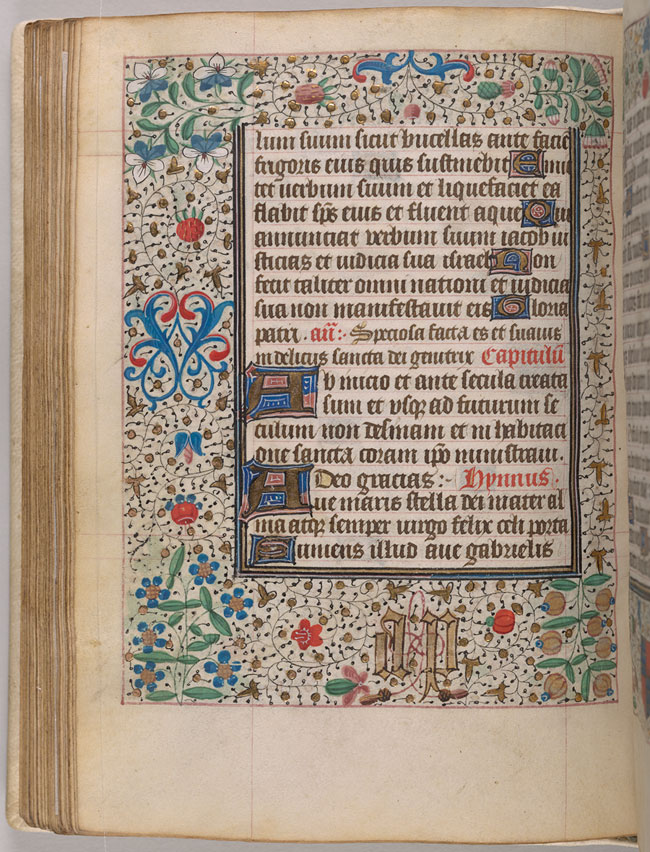 lum suum sicut bucellas ante facie
frigoris eius quis sustinebit Emit
tet uerbum suum et liquefaciet ea
flabit sps eius et fluent aque Qui
annunciat verbum suum iacob iu
sticias et iudicia sua israel Non
fecit taliter omni nationi et iudicia
sua non manifestauit eis Gloria
patri . añ: Speciosa facta es et suauis
in delicijs sancta dei genitrix Capitulũ
Ab inicio et ante secula creata
sum et vsqz ad futurum se
culum non desinam et in habitaci
one sancta coram ipo ministraui .
Deo gracias :- Hymnus .
Aue maris stella dei mater al
ma atqz semper uirgo felix celi porta
Sumens illud aue gabrielis